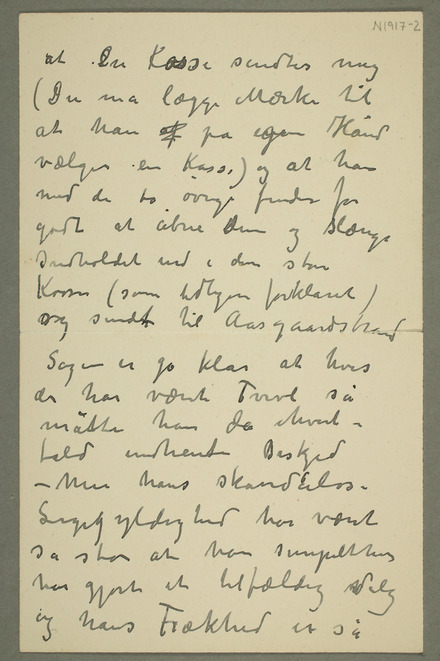 N1917-2
at En Kasse sendtes mig
(Du må lægge Mærke til
at han på egen Hånd
vælger en Kasse) og at han
med de to øvrige finder for
godt at åbne dem og slænge
Indholdet ned i den store
Kasse (som tydligen forklaret)
og sendt til Aasgaardstrand
Sagen er jo klar at hvis
der har været Tvivl så
måtte han da ihvert-
fald indhente Beskjed
– Men hans skandaløse
Ligegyldighed har været
så stor at han simpelthen
har gjort et tilfældig Valg
og hans Frækhed er så